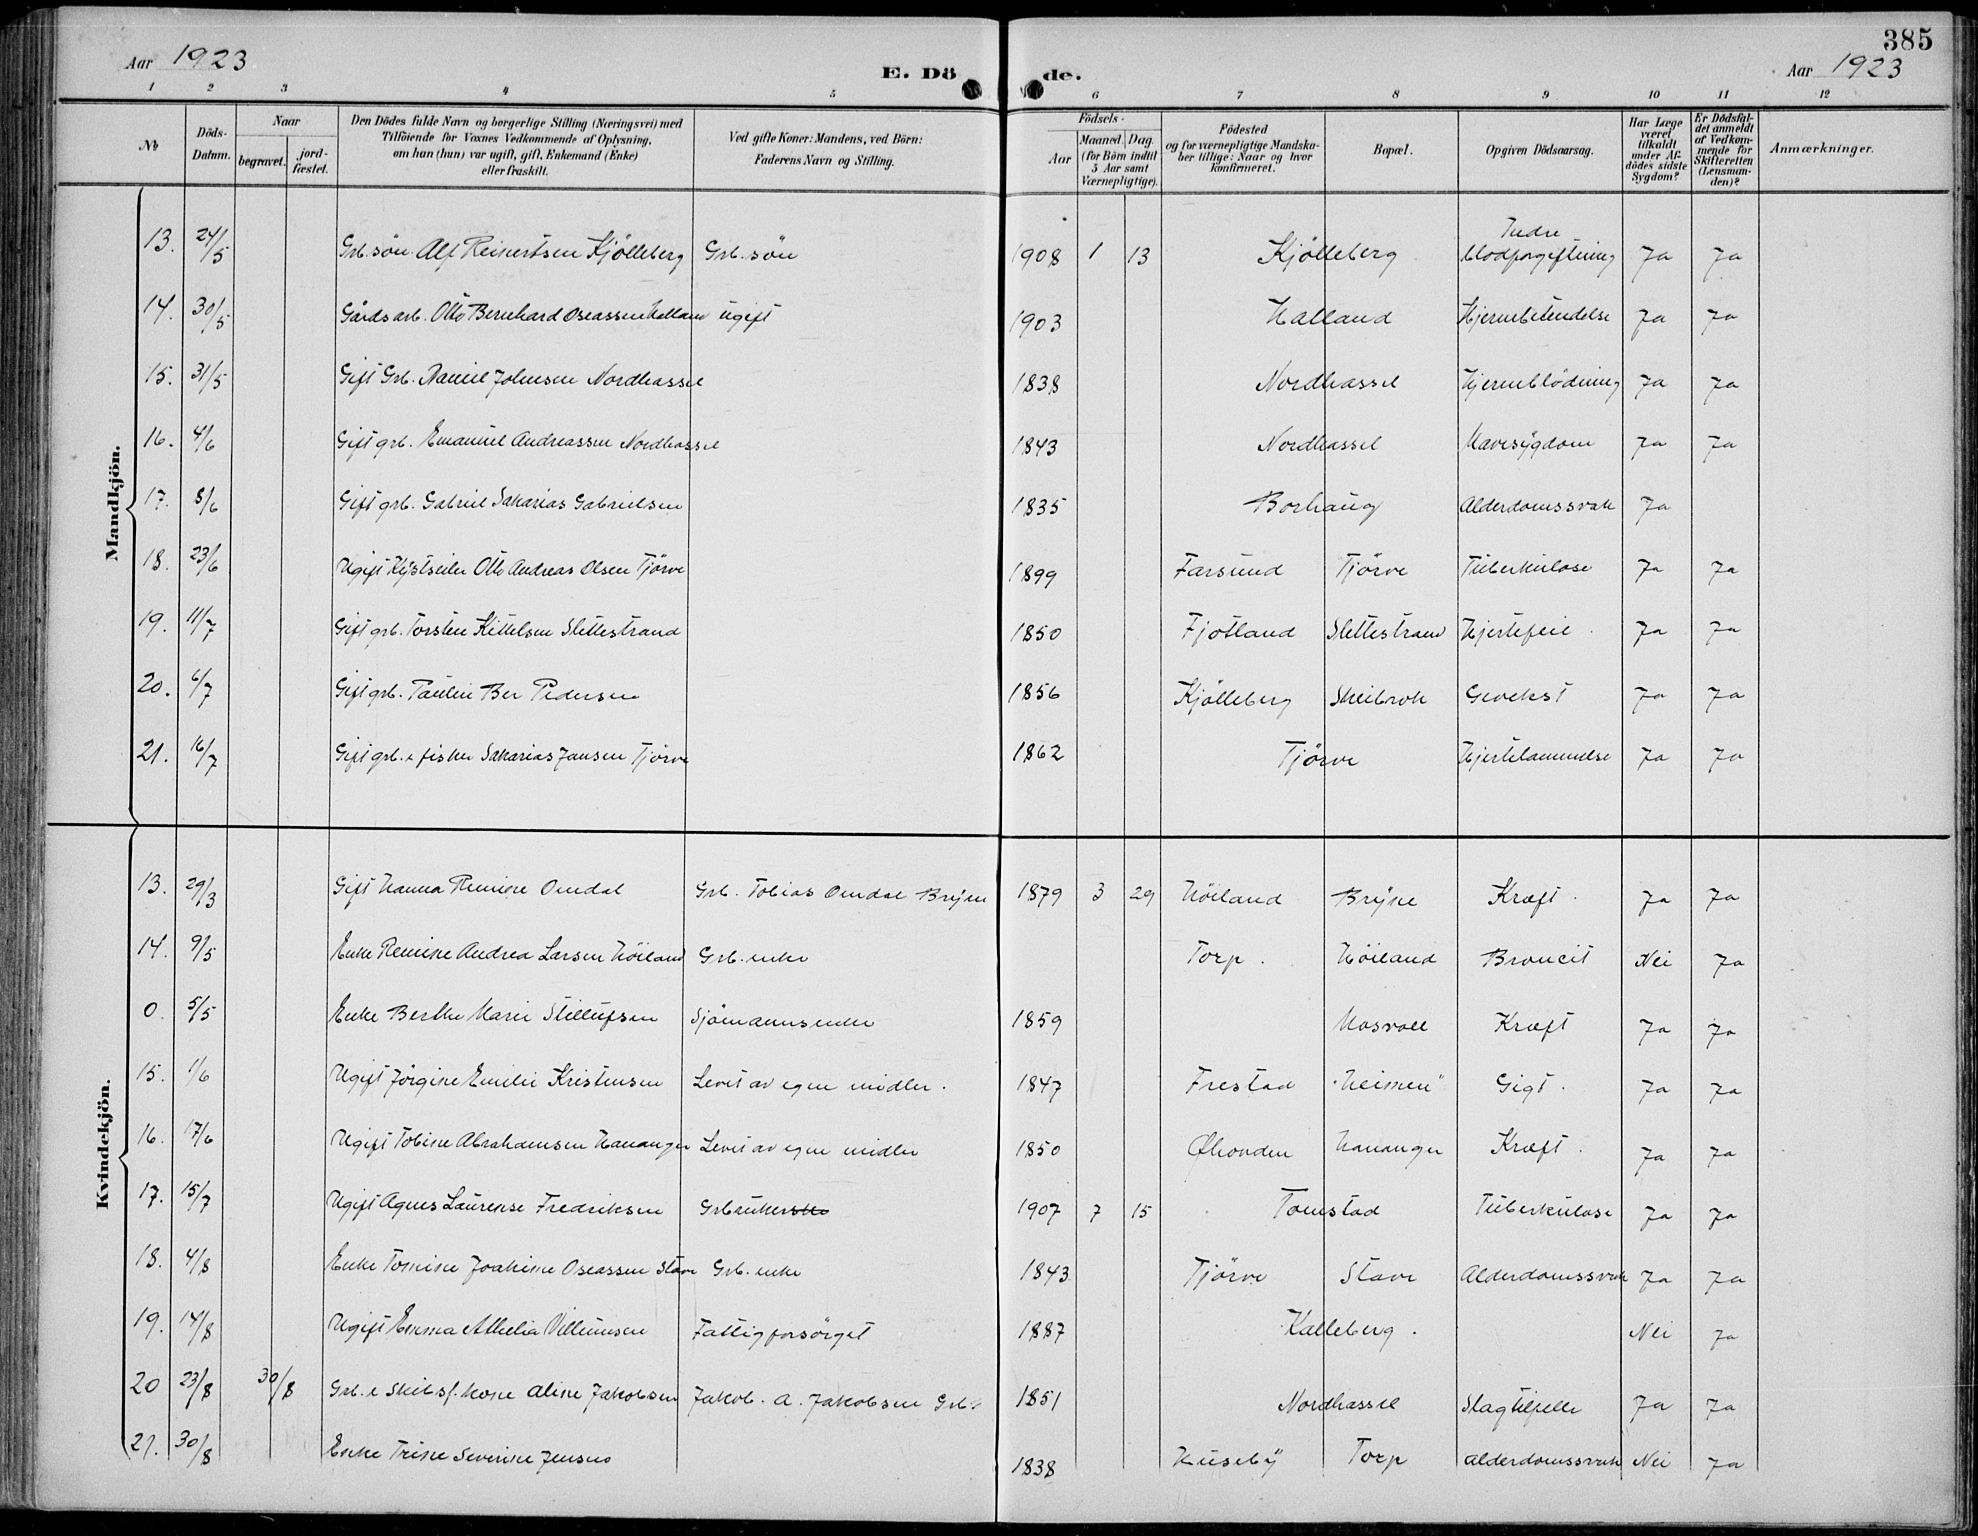 385
Aar 1923 E. Dö de. Aar 1923
1 2 3 4 5 6 7 8 9 10 11 12
№ Döds-Datum. Naar begravet. jord-fæstet. Den Dödes fulde Navn og borgerlige Stilling (Næringsvei) med Tilföiende for Voxnes Vedkommende af Oplysning, om han (hun) var ugift, gift, Enkemand (Enke) eller fraskilt. Ved gifte Koner: Mandens, ved Börn: Faderens Navn og Stilling. Födsels- Aar Maaned. Dag. (for Börn indtil 5 Aar samt Værnepligtige). Födested og for værnepligtige Mandskaber tillige: Naar og hvor konfirmeret. Bopæl. Opgiven Dödsaarsag. Har Læge været tilkaldt under Afdödes sidste Sygdom? Er Dödsfaldet anmeldt af Vedkommende for Skifteretten (Lensmanden)? Anmærkninger.
Mandkjön.
13. 24/5 Grb. sön Alf Reinertsen Kjölleberg Grb. sön 1908 1 13 Kjölleberg Indre blodforgiftning Ja Ja
14. 30/5 Gårdsarb. Otto Bernhard Oseassen Halland ugift 1903 Halland Hjernebetendelse Ja Ja
15. 31/5 Gift Grb. Daniel Johnsen Nordhassel 1838 Nordhassel Hjerneblödning Ja Ja
16. 4/6 Gift grb. Emanuel Andreassen Nordhassel 1843 Nordhassel Mavesygdom Ja Ja
17. 8/6 Gift grb. Gabriel Sakarias Gabrielsen 1835 Borhaug Alderdomssvak Ja
18. 23/6 Ugift Kystseiler Otto Andreas Olsen Tjörve 1899 Farsund Tjörve Tuberkulose Ja Ja
19. 11/7 Gift grb. Torsten Kittelsen Slettestrand 1850 Fjotland Slettestrand Hjertefeil Ja Ja
20. 6/7 Gift grb. Paulin Ber Pedersen 1856 Kjölleberg Skeibrok Gevekst Ja Ja
21. 16/7 Gift grb. & fisker Sakarias Jansen Tjörve 1862 Tjörve Hjertelammelse Ja Ja
Kvindekjön.
13. 29/3 Gift Hanna Remine Omdal Grb. Tobias Omdal Bryne 1879 3 29 Höiland Bryne Kræft. Ja Ja
14. 9/5 Enke Remine Andrea Larsen Höiland Grb. enke Torp. Höiland Broncit Nei Ja
0. 5/5 Enke Berthe Marie Stellufsen Sjömannsenke 1859 Mosvoll Kræft Ja Ja
15. 1/6 Ugift Jörgine Emilie Kristensen Levet av egne midler. 1847 Frestad "Heimen" Gigt. Ja Ja
16. 17/6 Ugift Tobine Abrahamsen Hananger Levet av egne midler 1850 Hananger Kræft. Ja Ja
17. 15/7 Ugift Agnes Laurense Fredriksen 1907 7 15 Tomstad Tuberkulose Ja Ja
18. 4/8 Enke Tomine Joakime Oseassen Stave Grb. enke 1843 Tjörve Stave Alderdomssvak Ja Ja
19. 14/8 Ugift Emma Athelia Villumsen Fattigforsörget 1887 Kalleberg. Nei Ja
20 23/8 30/8 Grb. & Skibsf. kone Aline Jakobsen Jakob. A. Jakobsen Grb. 1851 Nordhassel Slagtilfelle Ja Ja
21. 30/8 Enke Trine Severine Jensen 1838 Huseby Torp Alderdomssvak Nei Ja